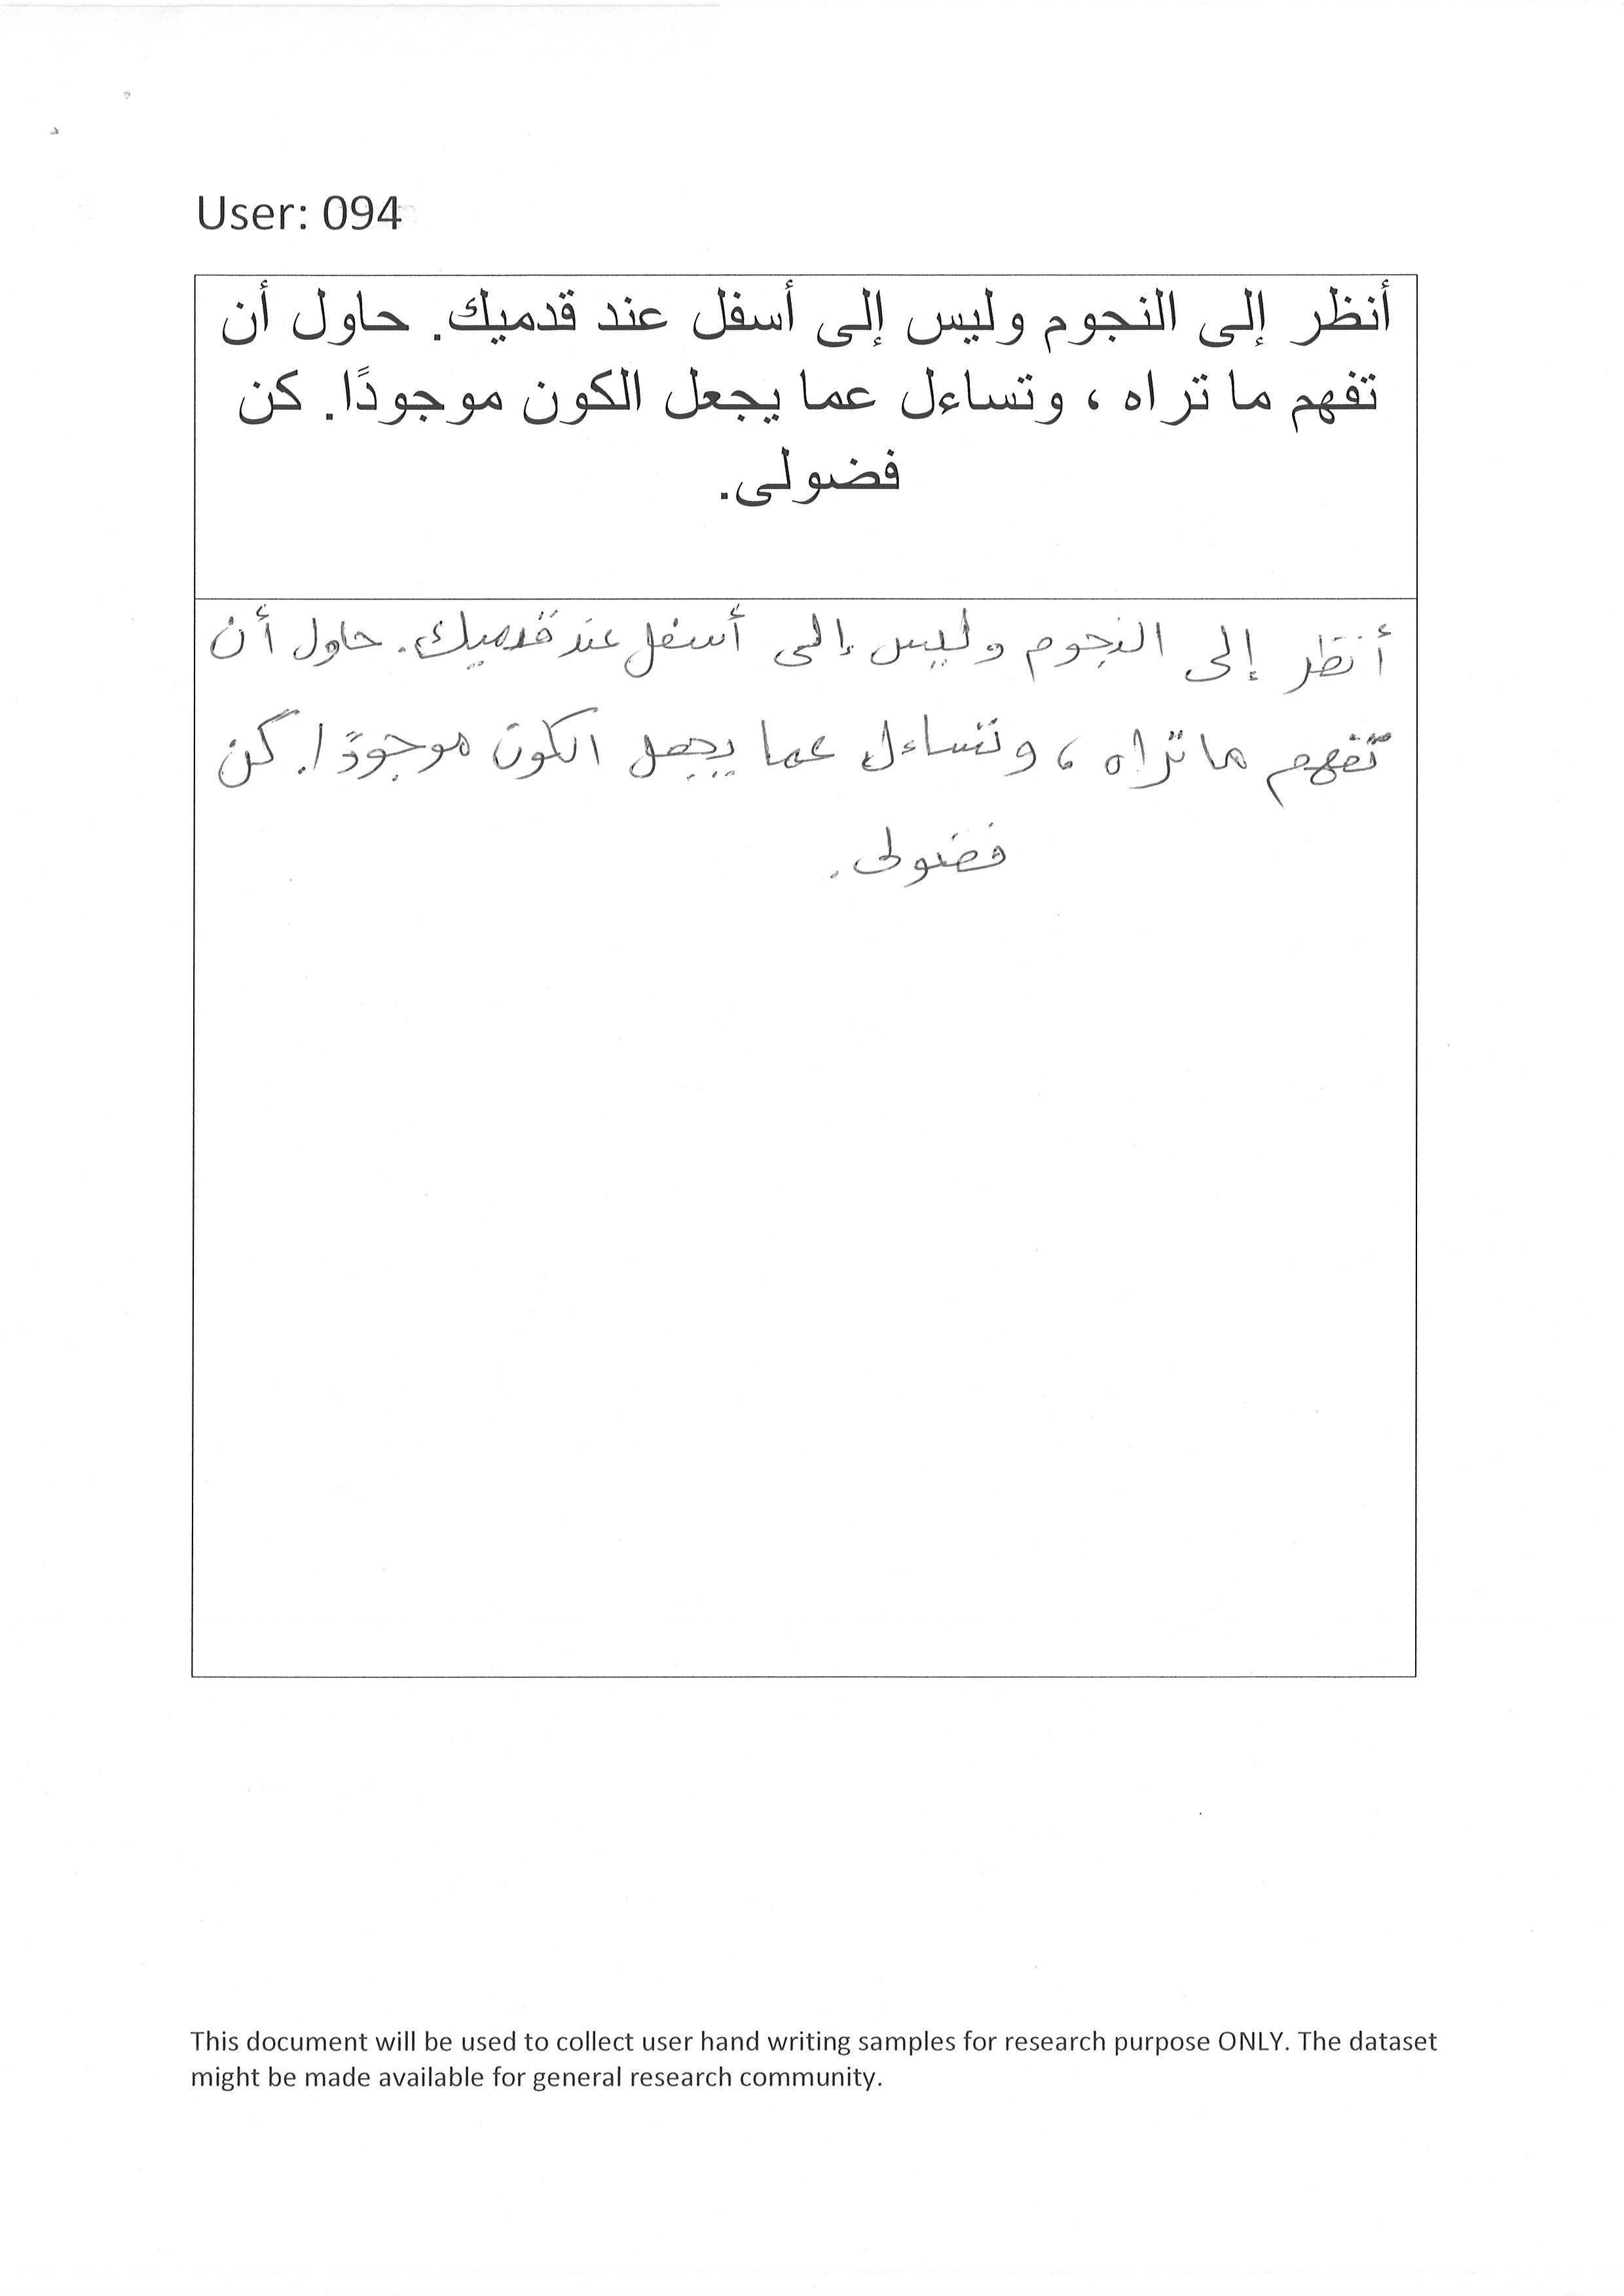 User: 094
أنظر إلى النجوم وليس إلى أسفل عند قدميك. حاول أن
تفهم ما تراه ، وتساءل عما يجعل الكون موجودًا. كن
فضولى.
أنظر إلى النجوم وليس إلى أسفل عند قدميك. حاول أن
تفهم ما تراه ، وتساءل عما يجعل الكون موجودًا. كن
فضولى.
This document will be used to collect user hand writing samples for research purpose ONLY. The dataset
might be made available for general research community.